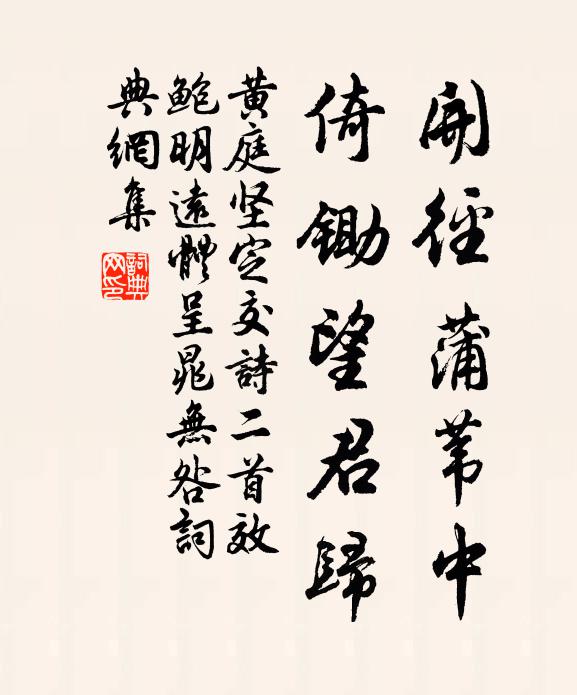 開徑蒲苇中
倚鋤望君歸
黃庭坚定交詩二首效
鮑明遠體呈晁無咎詞
典網集
詞典
网印